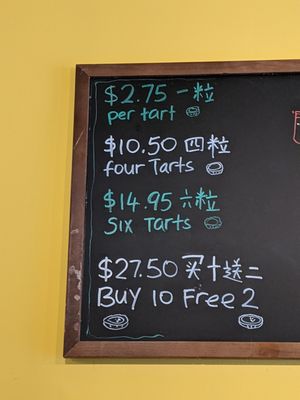 $2.75 一粒
per tart
$10.50 四粒
four Tarts
$14.95 六粒
Six Tarts
$27.50 买十送二
Buy 10 Free 2